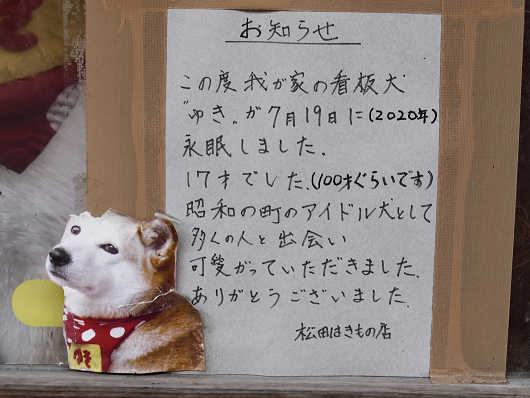 お知らせ
この度我が家の看板犬
"ゆき"が7月19日に(2020年)
永眠しました.
17才でした.(100才ぐらいです)
昭和の町のアイドル犬として
多くの人と出会い
可愛がっていただきました.
ありがとうございました.
松田はきもの店
ゆき